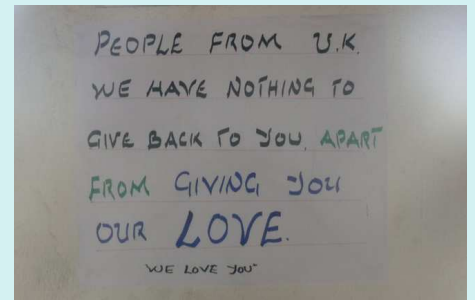 PEOPLE FROM U.K.
WE HAVE NOTHING TO
GIVE BACK TO YOU. APART
FROM GIVING YOU
OUR LOVE.
WE LOVE YOU"